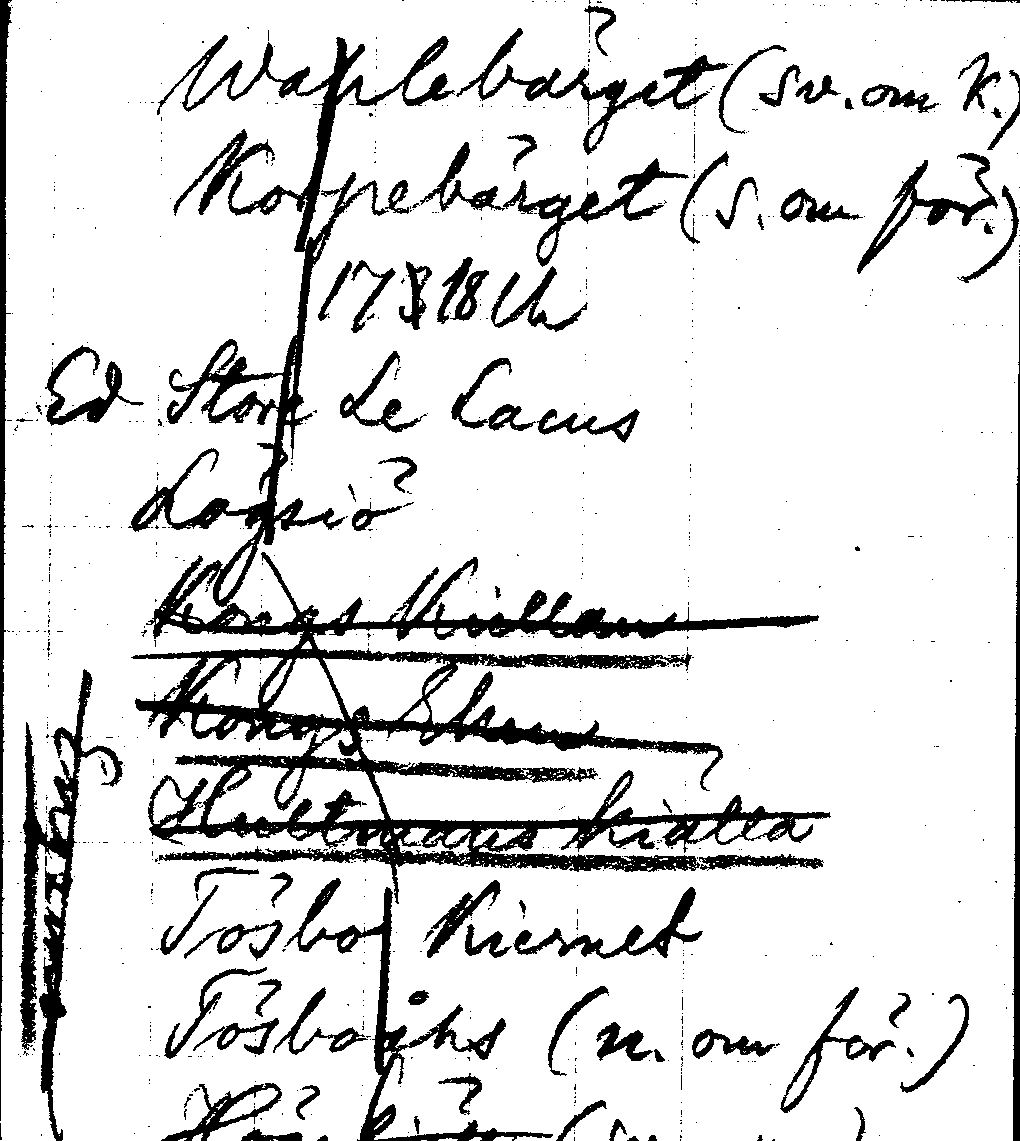 Wahlebärget (sv. om K.)
Korpebärget (S. om för.)
17 18 Uh
Ed Store Le Lacus
Lögsiö
Kongs Kullan
Kongs Ekun
Hultmans Kiälla
Tösbo Kiernet
Tösboåhs (n. om för.)